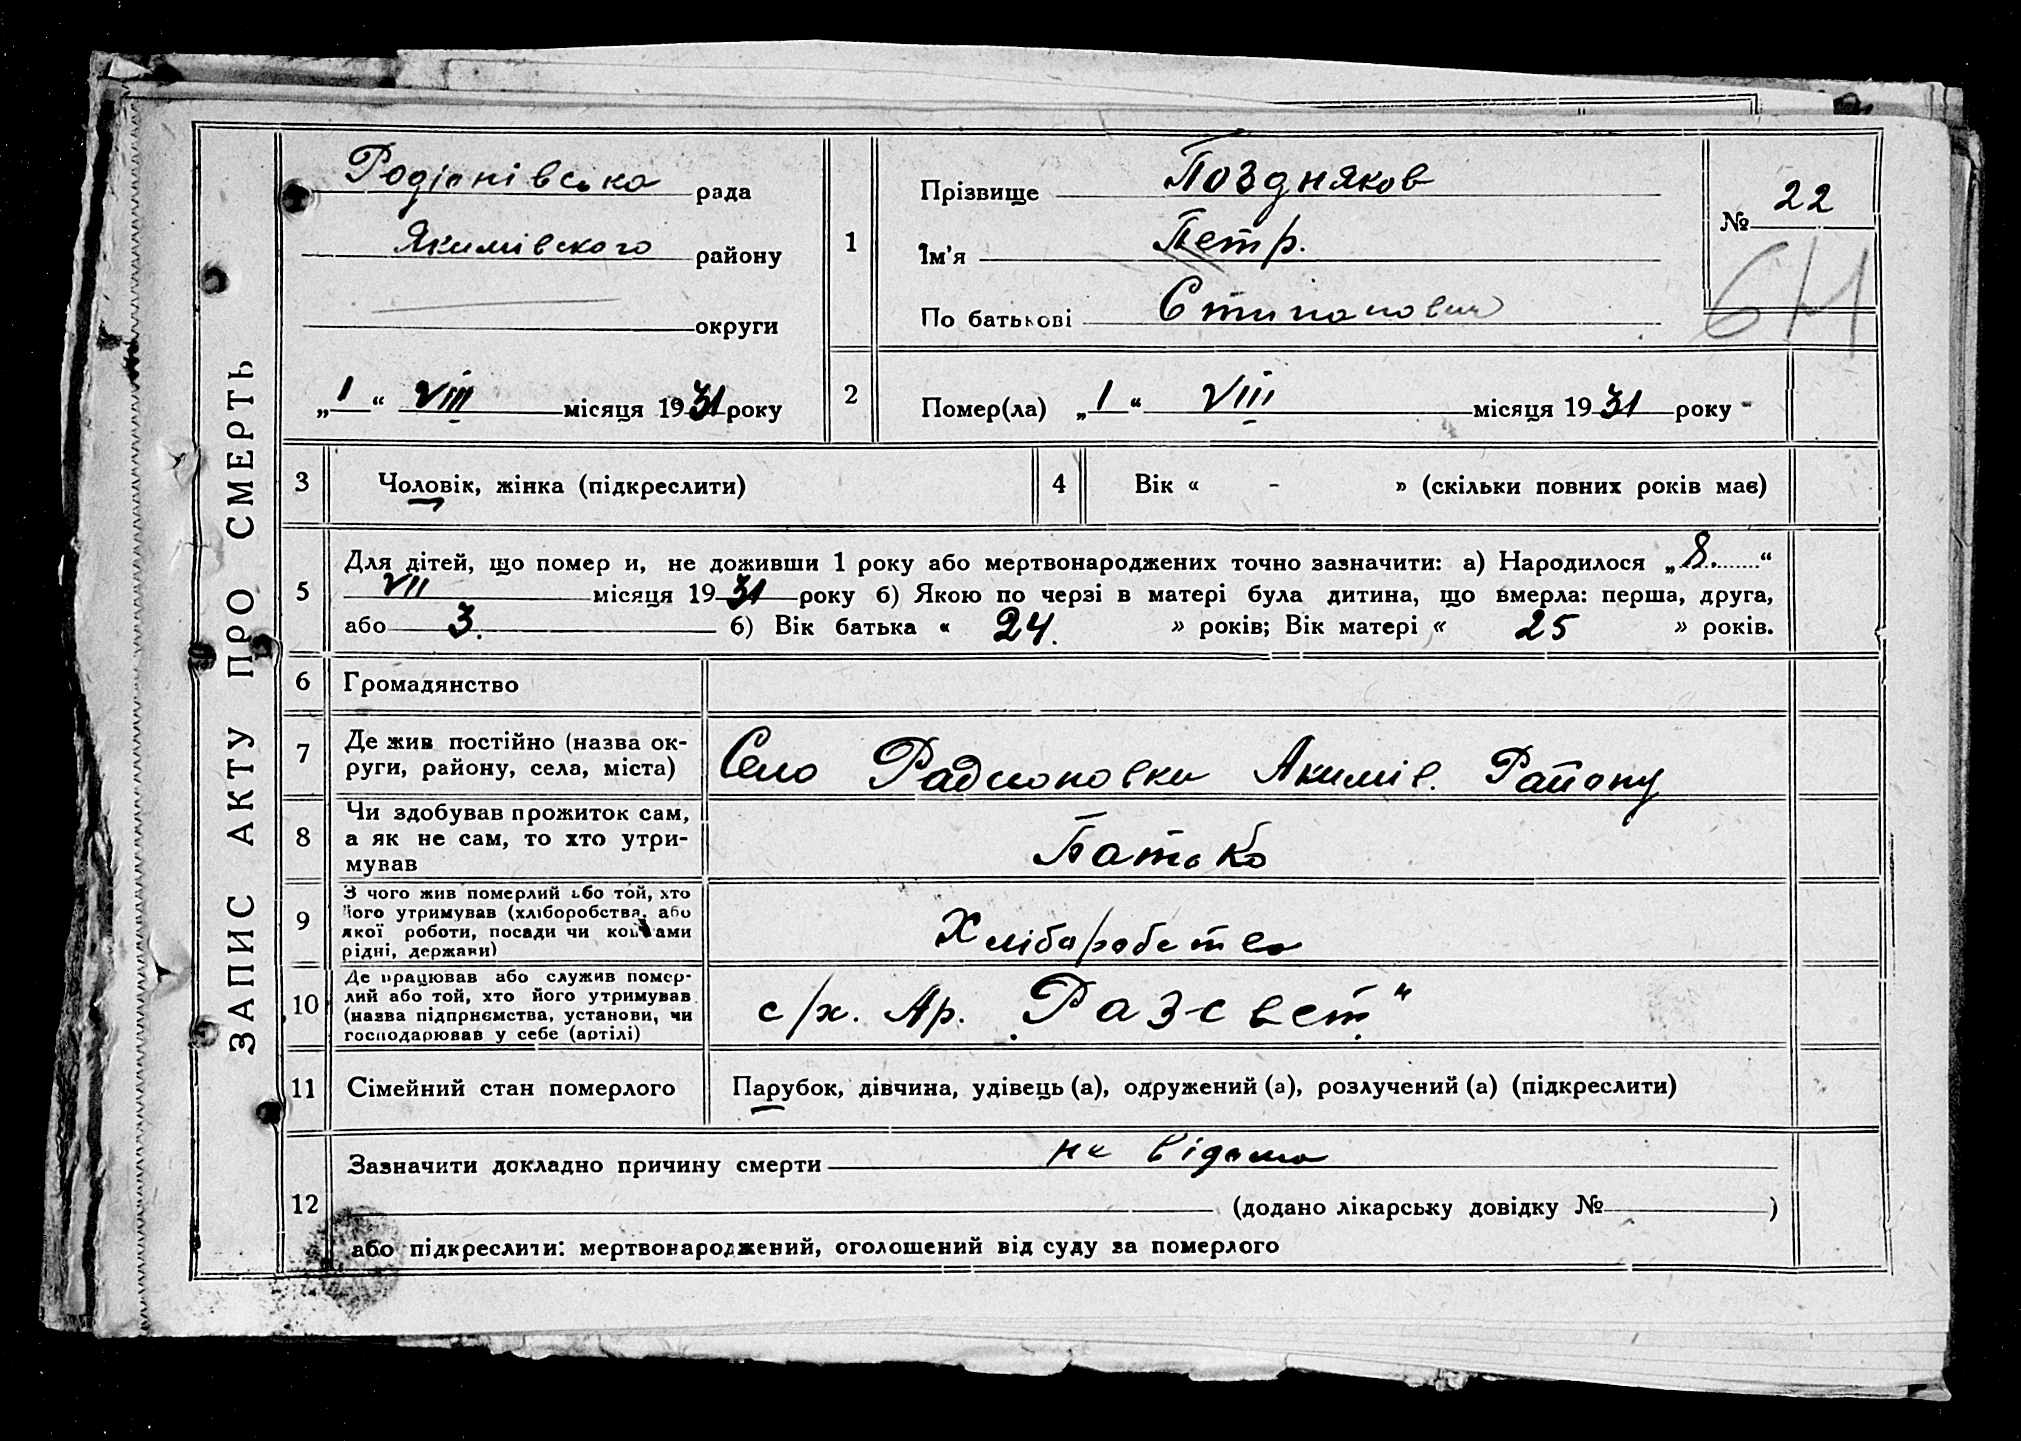 ЗАПИС АКТУ ПРО СМЕРТЬ
Родіонівська рада
Якимівского району
округи
„1“ VIII місяця 1931 року
1
Прізвище Поздняков
Ім'я Петр.
По батькові Стипанович
№ 22
2
Помер(ла) „1“ VIII місяця 1931 року
3 Чоловік, жінка (підкреслити)
4 Вік « - » (скільки повних років має)
5
Для дітей, що помер и, не доживши 1 року або мертвонароджених точно зазначити: а) Народилося „8.“
VII місяця 1931 року б) Якою по черзі в матері була дитина, що вмерла: перша, друга,
або 3. б) Вік батька « 24. » років; Вік матері « 25 » років.
6 Громадянство
7 Де жив постійно (назва ок-
руги, району, села, міста)
Село Радионовка Акимів. Району
8 Чи здобував прожиток сам,
а як не сам, то хто утри-
мував
Батько
9 З чого жив померлий або той, хто
його утримував (хліборобства, або
якої роботи, посади чи коштами
рідні, держави)
Хліборобство
10 Де працював або служив помер-
лий або той, хто його утримував
(назва підприємства, установи, чи
господарював у себе (артілі)
с/х. Ар. „Разсвет"
11 Сімейний стан померлого
Парубок, дівчина, удівець (а), одружений (а), розлучений (а) (підкреслити)
12
Зазначити докладно причину смерти не відомо
(додано лікарську довідку № )
або підкреслити: мертвонароджений, оголошений від суду за померлого